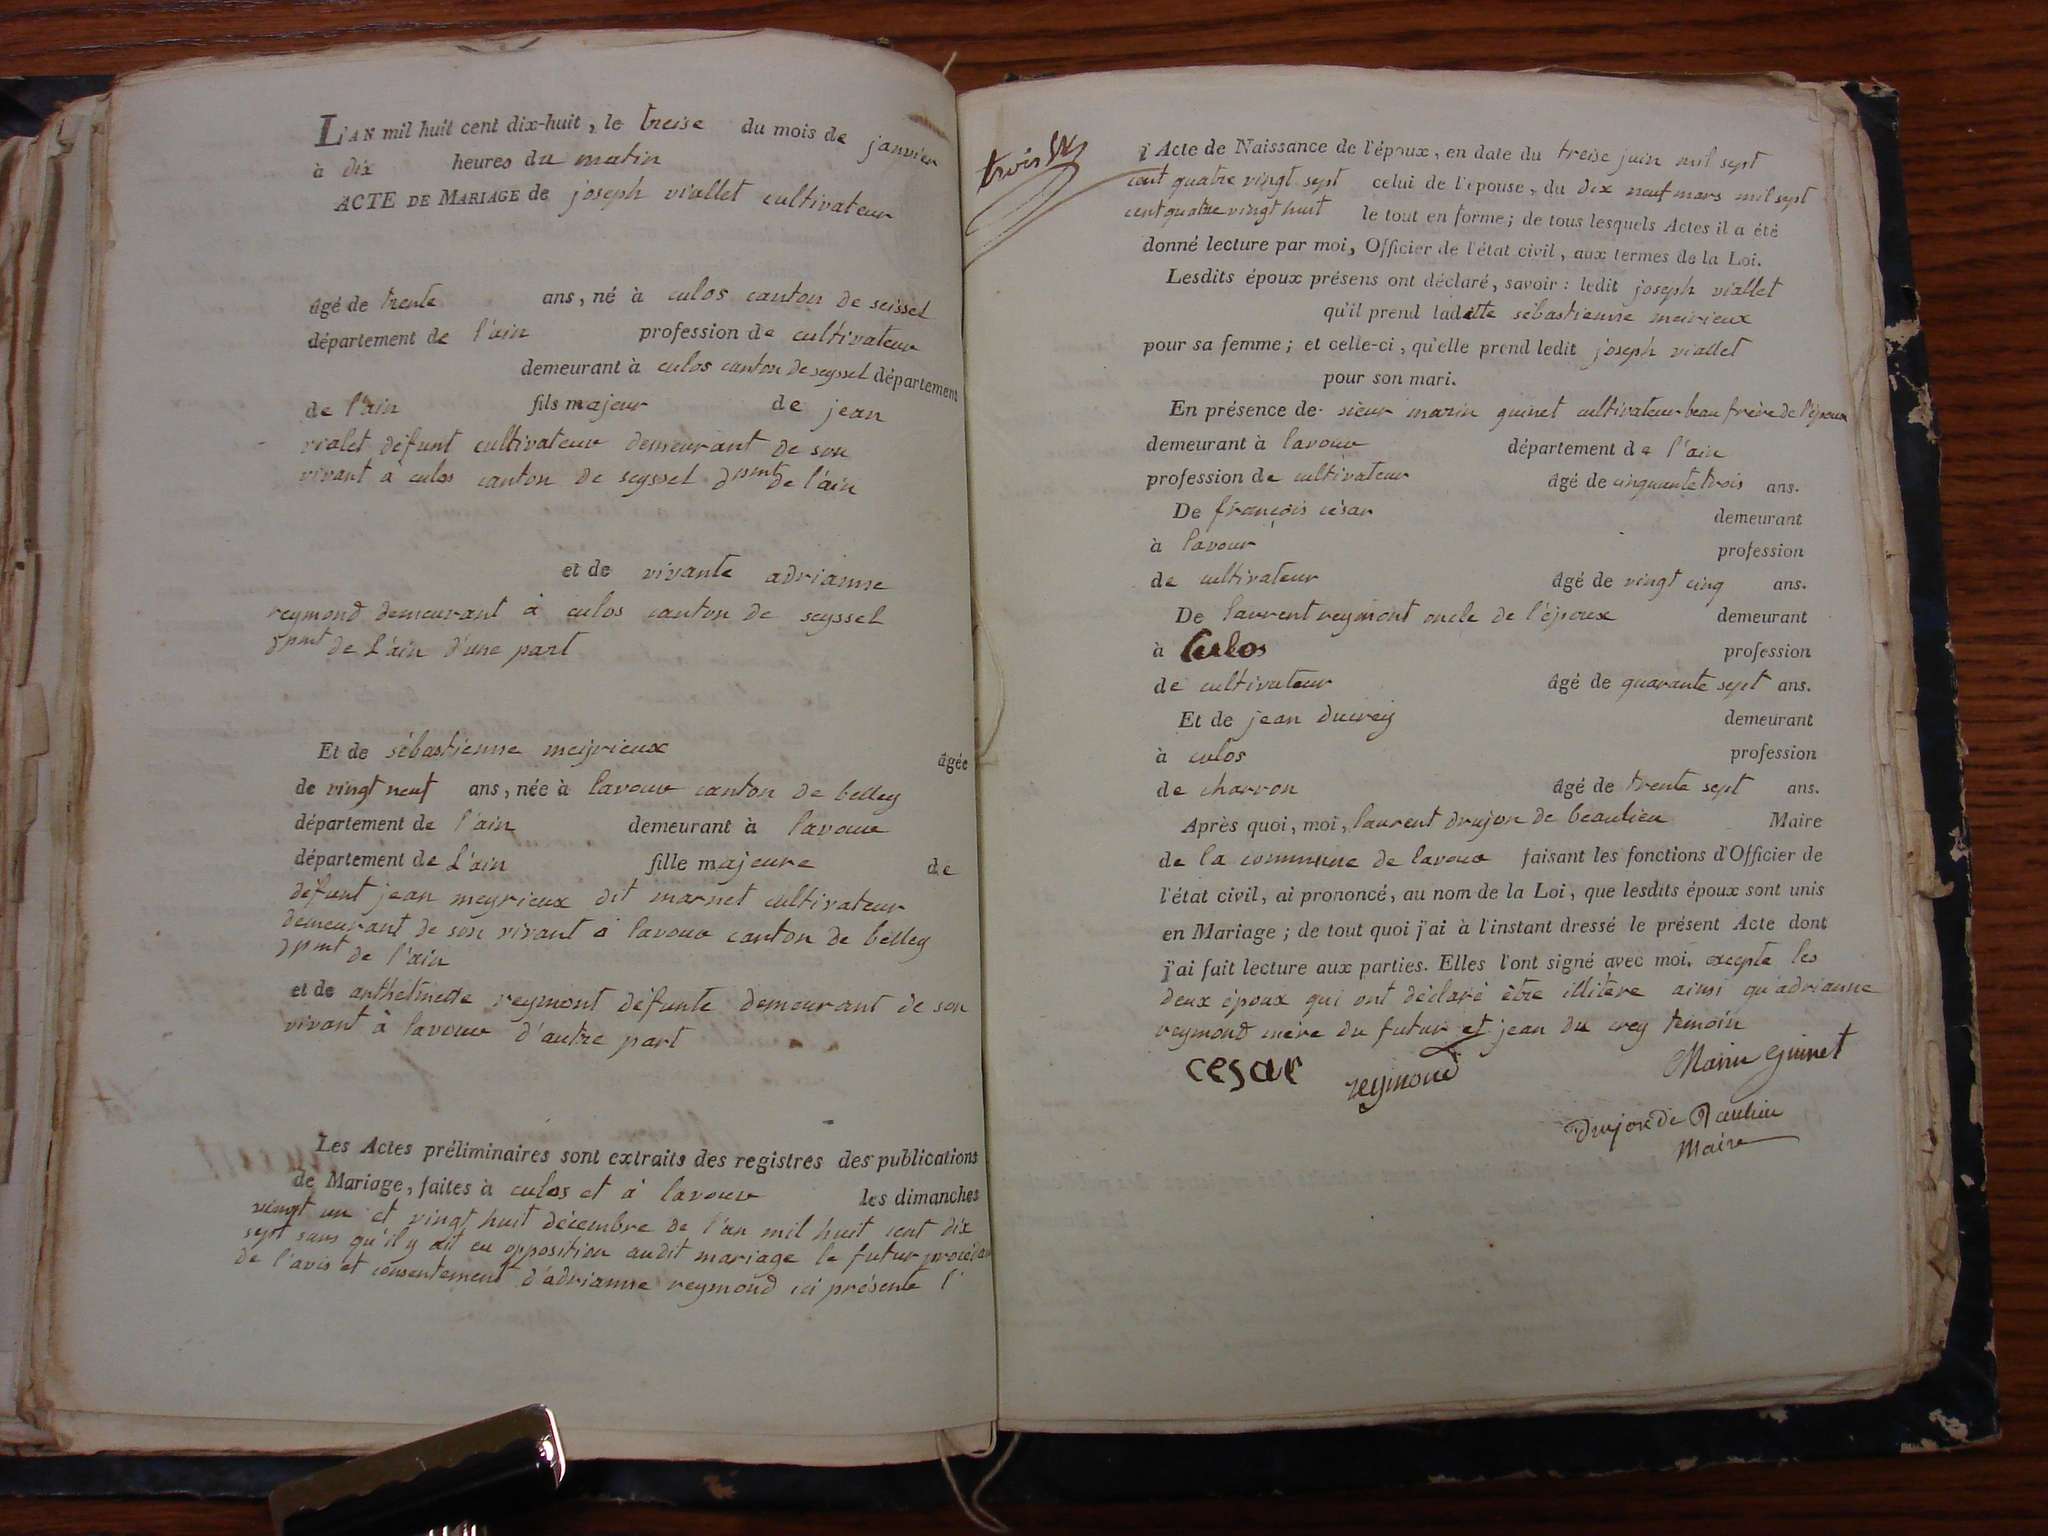 L'AN mil huit cent dix-huit, le treise du mois de janvier
à dix heures du matin
ACTE DE MARIAGE de joseph viallet cultivateur
âgé de trente ans, né à culos canton de seissel
département de l'ain profession de cultivateur
demeurant à culos canton de seyssel département
de l'ain fils majeur de jean
vialet défunt cultivateur demeurant de son
vivant à culos canton de seyssel dpmt de l'ain
et de vivante adrianne
reymond demeurant à culos canton de seyssel
dpmt de L'ain d'une part
Et de sébastienne meyrieux âgée
de vingt neuf ans, née à lavour canton de belley
département de l'ain demeurant à lavour
département de L'ain fille majeure de
défunt jean meyrieux dit marnet cultivateur
demeurant de son vivant à lavour canton de belley
dpmt de l'ain
et de anthelmette reymont défunte demeurant de son
vivant à lavour d'autre part
Les Actes préliminaires sont extraits des registres des publications
de Mariage, faites à culos et à lavour les dimanches
vingt un et vingt huit décembre de l'an mil huit cent dix
sept sans qu'il y ait eu opposition audit mariage le futur procédant
de l'avis et consentement d'adrianne reymond ici présente l'
trois
l'Acte de Naissance de l'époux, en date du treise juin mil sept
cent quatre vingt sept celui de l'épouse, du dix neuf mars mil sept
cent quatre vingt huit le tout en forme; de tous lesquels Actes il a été
donné lecture par moi, Officier de l'état civil, aux termes de la Loi.
Lesdits époux présens ont déclaré, savoir : ledit joseph viallet
qu'il prend ladette sébastienne meirieux
pour sa femme; et celle-ci, qu'elle prend ledit joseph viallet
pour son mari.
En présence de sieur marin guinet cultivateur beau frère de l'époux
demeurant à lavour département de l'ain
profession de cultivateur âgé de cinquante trois ans.
De françois césar demeurant
à lavour profession
de cultivateur âgé de vingt cinq ans.
De laurent reymont oncle de l'époux demeurant
à Culos profession
de cultivateur âgé de quarante sept ans.
Et de jean ducrey demeurant
à culos profession
de charron âgé de trente sept ans.
Après quoi, moi, laurent drujon de beaulieu Maire
de la commune de lavour faisant les fonctions d'Officier de
l'état civil, ai prononcé, au nom de la Loi, que lesdits époux sont unis
en Mariage; de tout quoi j'ai à l'instant dressé le présent Acte dont
j'ai fait lecture aux parties. Elles l'ont signé avec moi. excepte les
deux époux qui ont déclaré être illitére ainsi qu'adrianne
reymond mère du futur et jean du crey temoin
cesar reymond Marin guinet
Drujon de Beaulieu
Maire